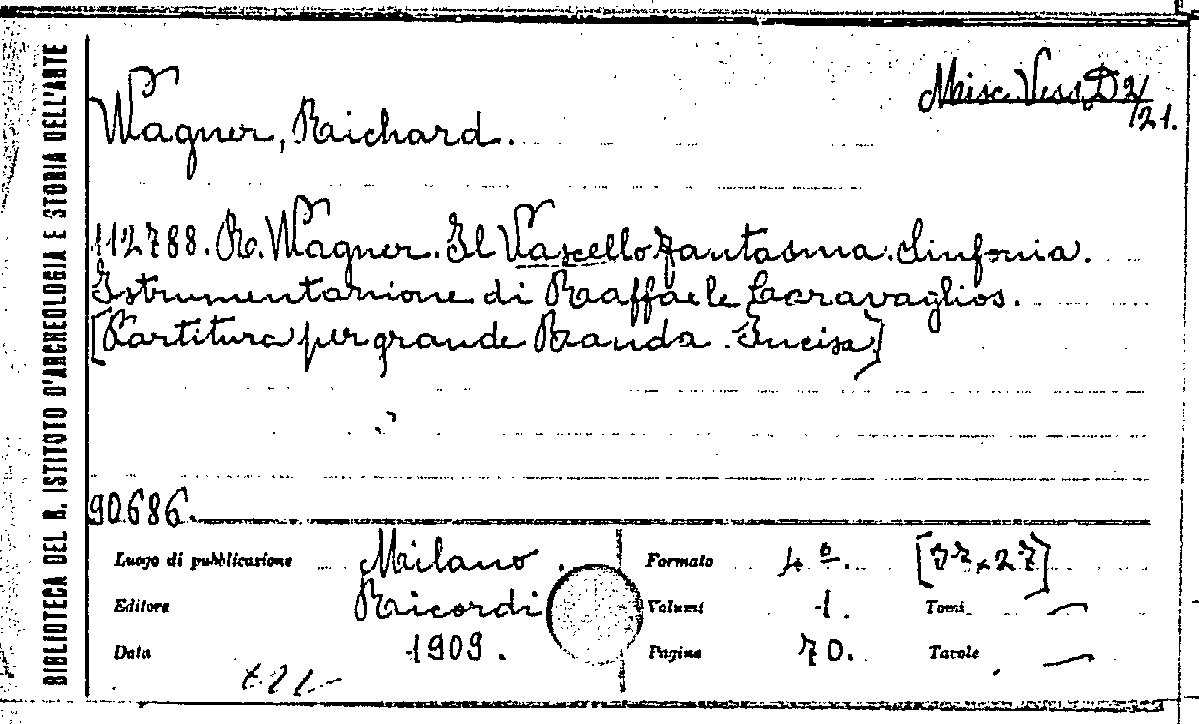 BIBLIOTECA DEL R. ISTITUTO D'ARCHEOLOGIA E STORIA DELL'ARTE
Misc. Vess. D 2/21.
Wagner, Richard.
112788. R. Wagner. Il Vascello fantasma. Sinfonia.
Istrumentazione di Raffaele Caravaglios.
[Partitura per grande Banda. Incisa]
90686.
Luogo di pubblicazione Milano. Formato 4º.
Editore Ricordi Volumi 1. Tomi —
Data 1909. Pagine 70. Tavole —